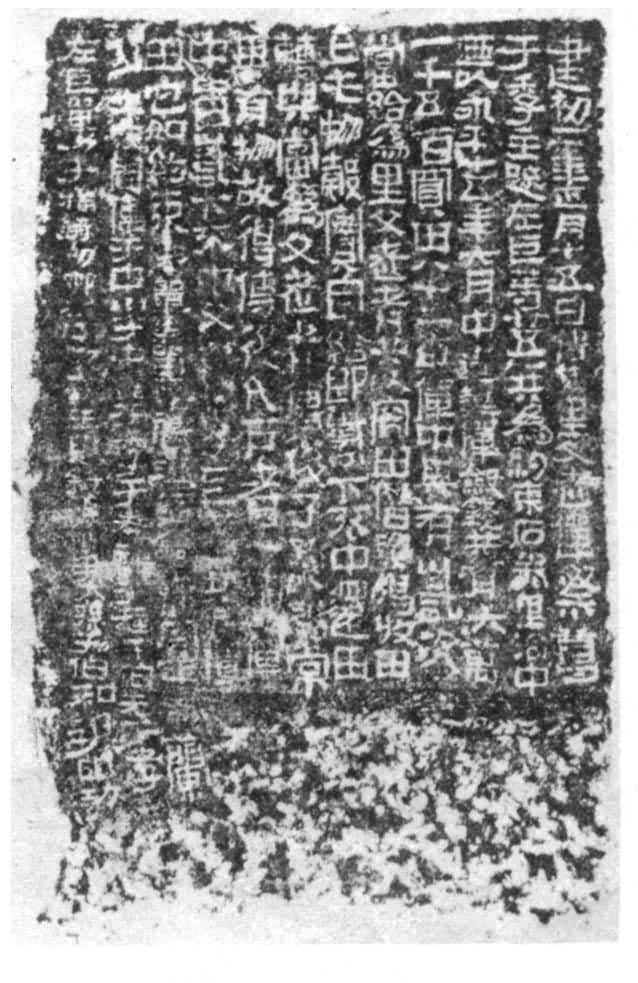 建初二年正月十五日侍廷里父老僤祭尊
于季主疏左巨等廿五人共為約束石券里治中
迺以永平十五年六月中造起僤斂錢共有六萬
一千五百買田八十二畝僤中其有訾次
當給為里父老者共以客田借與得收田
上毛物穀實自給即訾下不中還田
轉與當為父老者傳後子孫以為常
其有物故得傳後代戶者一人即僤
中皆訾下不中父老季巨等共假賃
田它如約束單侯單子陽尹伯通
周偉于中山于中程于季于孝卿于程于伯先于孝
左巨單力于稚錡初卿左伯 王思錡季卿尹太孫于伯和尹明功